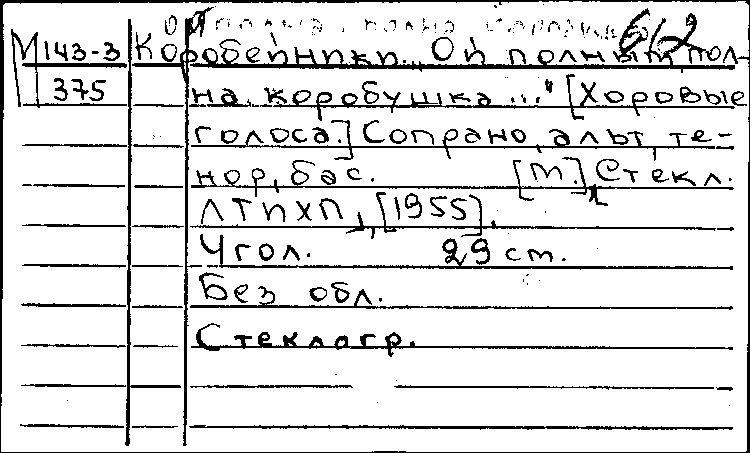 Ой полным полна коробушка 612
М143-3 Коробейники. „Ой полным, пол-
375 на коробушка..." [Хоровые
голоса.] Сопрано, альт, те-
нор, бас. [М.], Стекл.
ЛТПХП, [1955].
4 гол. 29 см.
Без обл.
Стеклогр.